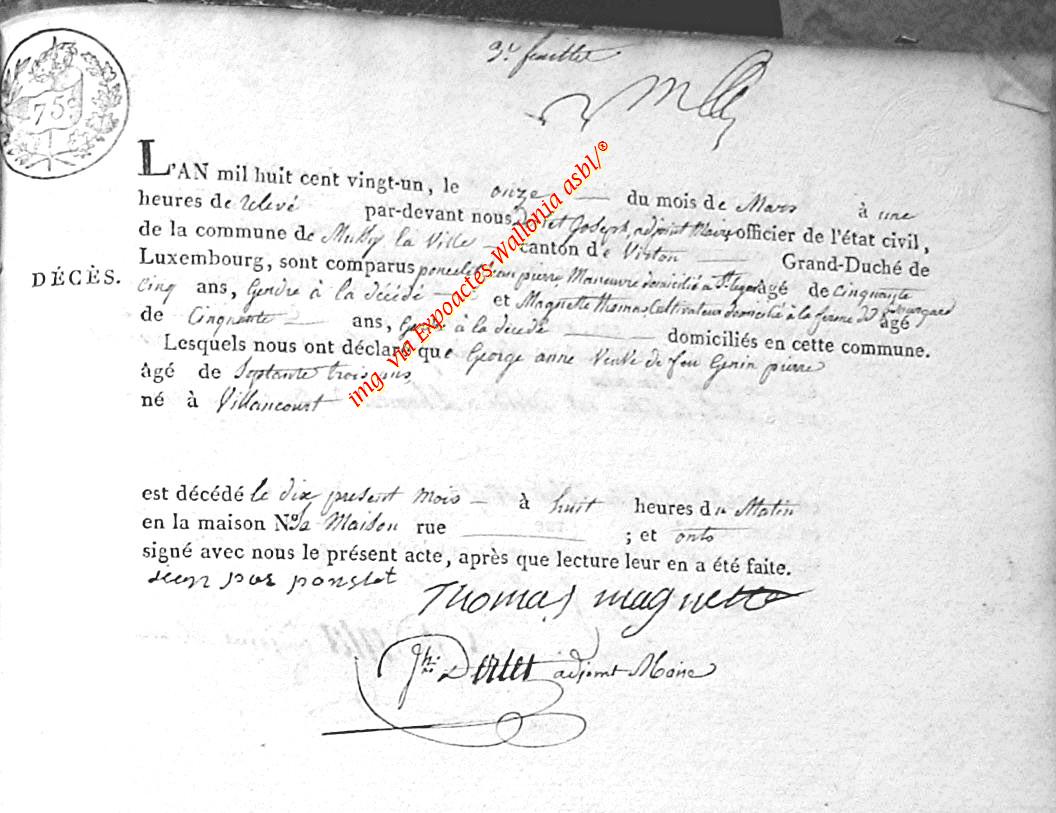 3e feuillet
75
L'AN mil huit cent vingt-un, le onze du mois de Mars à une
heures de relevé par-devant nous Derlet Joseph, adjoint Maire officier de l'état civil,
de la commune de Mussy la Ville canton de Virton Grand-Duché de
DÉCÈS.
Luxembourg, sont comparus poncelet jean pierre, Manœuvre domicilié a St Leger âgé de Cinquante
Cinq ans, Gendre à la décédé et Magnette Thomas Cultivateur domicilié à la ferme âgé
de Cinquante ans, Gendre à la décédé domiciliés en cette commune.
Lesquels nous ont déclaré que George anne Veuve de feu Genin pierre
âgé de Septante trois ans
né à Villancourt
est décédé le dix present mois à huit heures du Matin
en la maison No. sa Maison rue ; et onts
signé avec nous le présent acte, après que lecture leur en a été faite.
jean pier ponslet
Thomas magnette
Jh: Derlet adjoint Maire
img. via Expoactes-Wallonia asbl/®